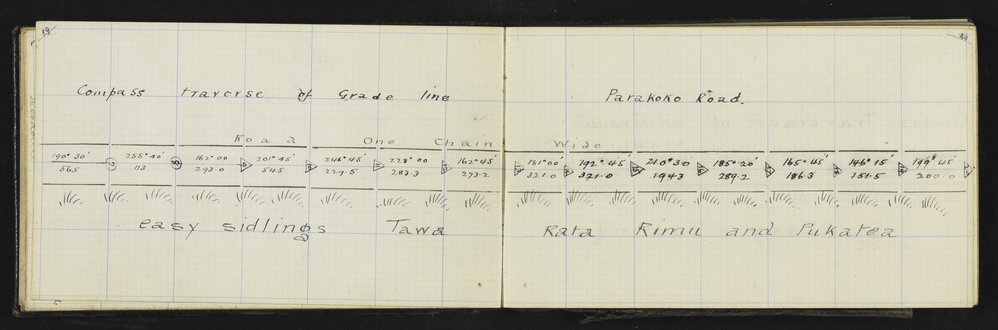 Compass traverse of Grade line
Parakoko Road.
Road One Chain Wide
190° 30' 255° 40' 162° 00 201° 45' 246° 45' 228° 00 162° 45' 181° 00' 192° 45 210° 30 185° 20' 165° 45' 146° 15' 149° 45'
565 113 293.0 545 229.5 283.3 273.2 321.0 321.0 194.3 289.2 186.3 151.5 200.0
easy sidlings Tawa Rata Rimu and Pukatea